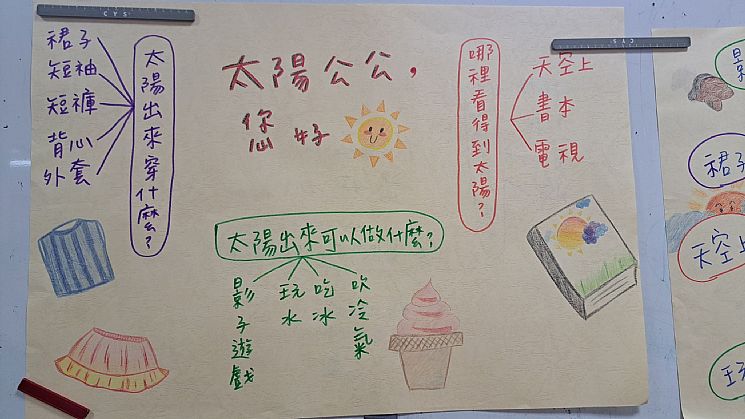 太陽公公，
您好
太陽出來穿什麼？
裙子
短袖
短褲
背心
外套
哪裡看得到太陽？
天空上
書本
電視
太陽出來可以做什麼？
影子遊戲
玩水
吃冰
吹冷氣
CYS
CYS
影
裙子
天空上
玩